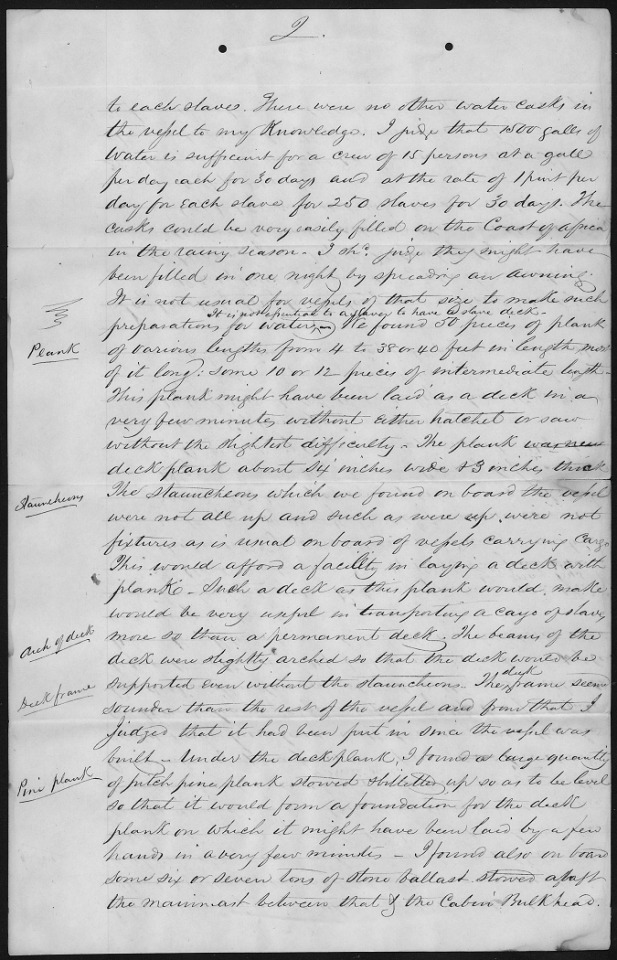 2.
to each slaves. There were no other water casks in
the vessel to my Knowledge. I judge that 1500 galls of
Water is sufficient for a crew of 15 persons at a gall
per day each for 30 days and at the rate of 1 pint per
day for Each slave for 250 slaves for 30 days. The
casks could be very easily filled on the Coast of Africa
in the rainy season - I shd. judge they might have
been filled in one night by spreading an awning.
It is not usual for vessels of that size to make such
It is not essential to a slaver to have a slave deck -
preparations for water. We found 50 pieces of plank
Plank
of various lengths from 4 to 38 or 40 feet in length most
of it long: some 10 or 12 pieces of intermediate length -
This plank might have been laid as a deck in a
very few minutes without Either hatchet or saw
without the slightest difficulty - The plank was new
deck plank about six inches wide & 3 inches thick
Stauncheons
The stauncheons which we found on board the vessel
were not all up and such as were up were not
fixtures as is usual on board of vessels carrying Cargo
This would afford a facility in laying a deck with
plank - Such a deck as this plank would make
would be very useful in transporting a cargo of slaves
Arch of deck
more so than a permanent deck. The beams of the
deck were slightly arched so that the deck would be
supported even without the stauncheons - The deck frame seems
Deck frame
sounder than the rest of the vessel and from that I
Judged that it had been put in since the vessel was
built - Under the deck plank, I found a large quantity
Pine plank
of pitch pine plank stowed up so as to be level
so that it would form a foundation for the deck
plank on which it might have been laid by a few
hands in a very few minutes - I found also on board
some six or seven tons of stone ballast stowed abaft
the mainmast between that & the Cabin Bulkhead.